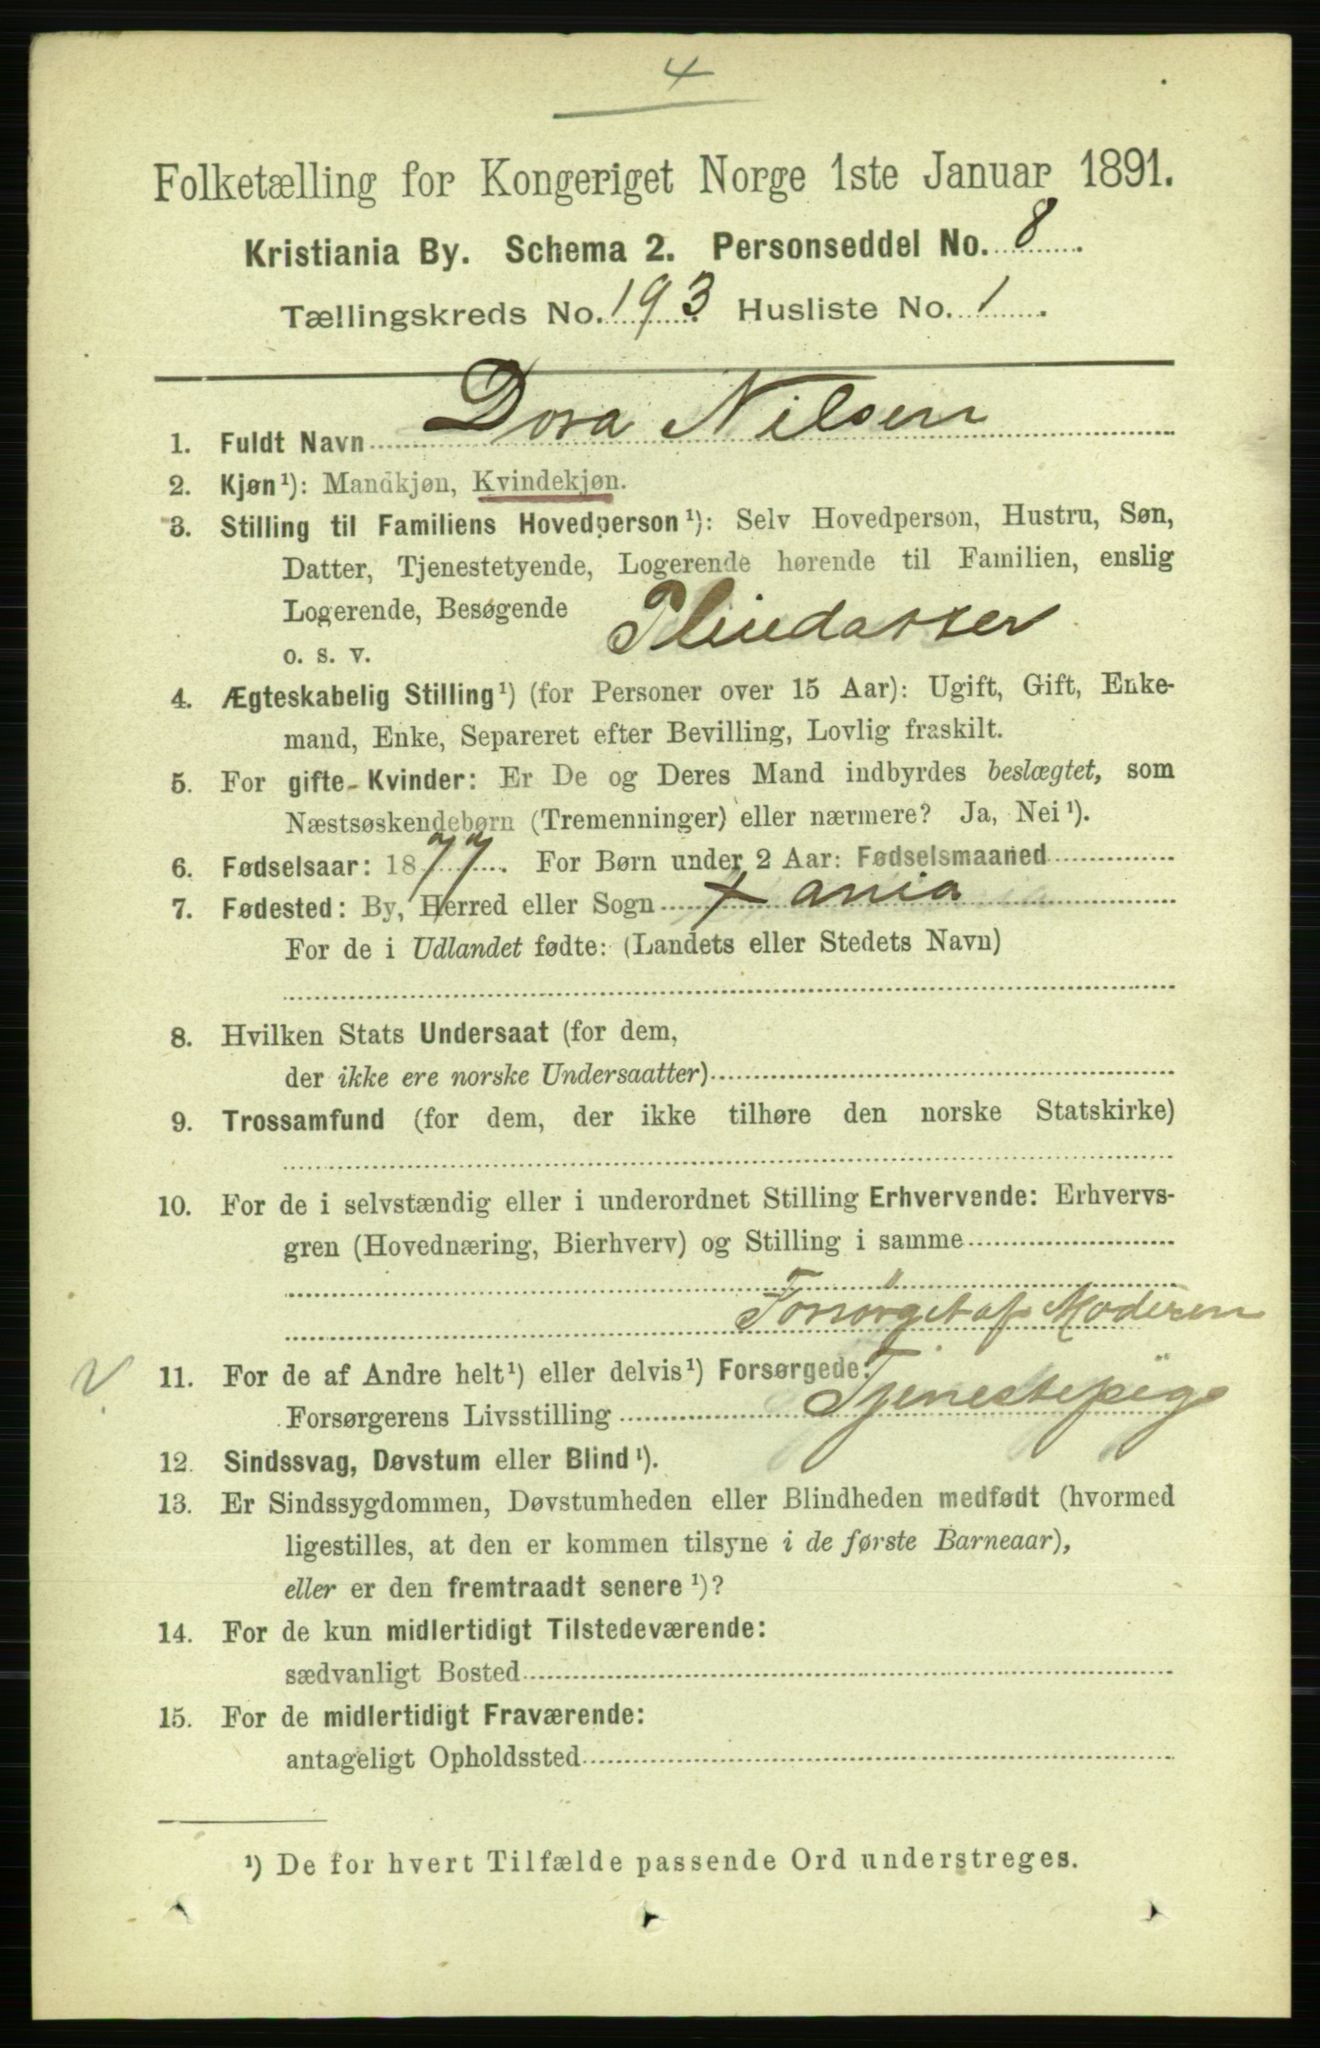 4
Folketælling for Kongeriget Norge 1ste Januar 1891.
Kristiania By. Schema 2. Personseddel No. 8
Tællingskreds No. 193 Husliste No. 1
1. Fuldt Navn Dora Nilsen
2. Kjøn¹): Mandkjøn, Kvindekjøn.
3. Stilling til Familiens Hovedperson¹): Selv Hovedperson, Hustru, Søn,
Datter, Tjenestetyende, Logerende hørende til Familien, enslig
Logerende, Besøgende Pleiedatter
o. s. v.
4. Ægteskabelig Stilling¹) (for Personer over 15 Aar): Ugift, Gift, Enke-
mand, Enke, Separeret efter Bevilling, Lovlig fraskilt.
5. For gifte Kvinder: Er De og Deres Mand indbyrdes beslægtet, som
Næstsøskendebørn (Tremenninger) eller nærmere? Ja, Nei¹).
6. Fødselsaar: 1877. For Børn under 2 Aar: Fødselsmaaned
7. Fødested: By, Herred eller Sogn Xania
For de i Udlandet fødte: (Landets eller Stedets Navn)
8. Hvilken Stats Undersaat (for dem,
der ikke ere norske Undersaatter)
9. Trossamfund (for dem, der ikke tilhøre den norske Statskirke)
10. For de i selvstændig eller i underordnet Stilling Erhvervende: Erhvervs-
gren (Hovednæring, Bierhverv) og Stilling i samme
Forsörget af Moderen
11. For de af Andre helt¹) eller delvis¹) Forsørgede:
Forsørgerens Livsstilling Tjenestepige
12. Sindssvag, Døvstum eller Blind¹).
13. Er Sindssygdommen, Døvstumheden eller Blindheden medfødt (hvormed
ligestilles, at den er kommen tilsyne i de første Barneaar),
eller er den fremtraadt senere¹)?
14. For de kun midlertidigt Tilstedeværende:
sædvanligt Bosted
15. For de midlertidigt Fraværende:
antageligt Opholdssted
¹) De for hvert Tilfælde passende Ord understreges.